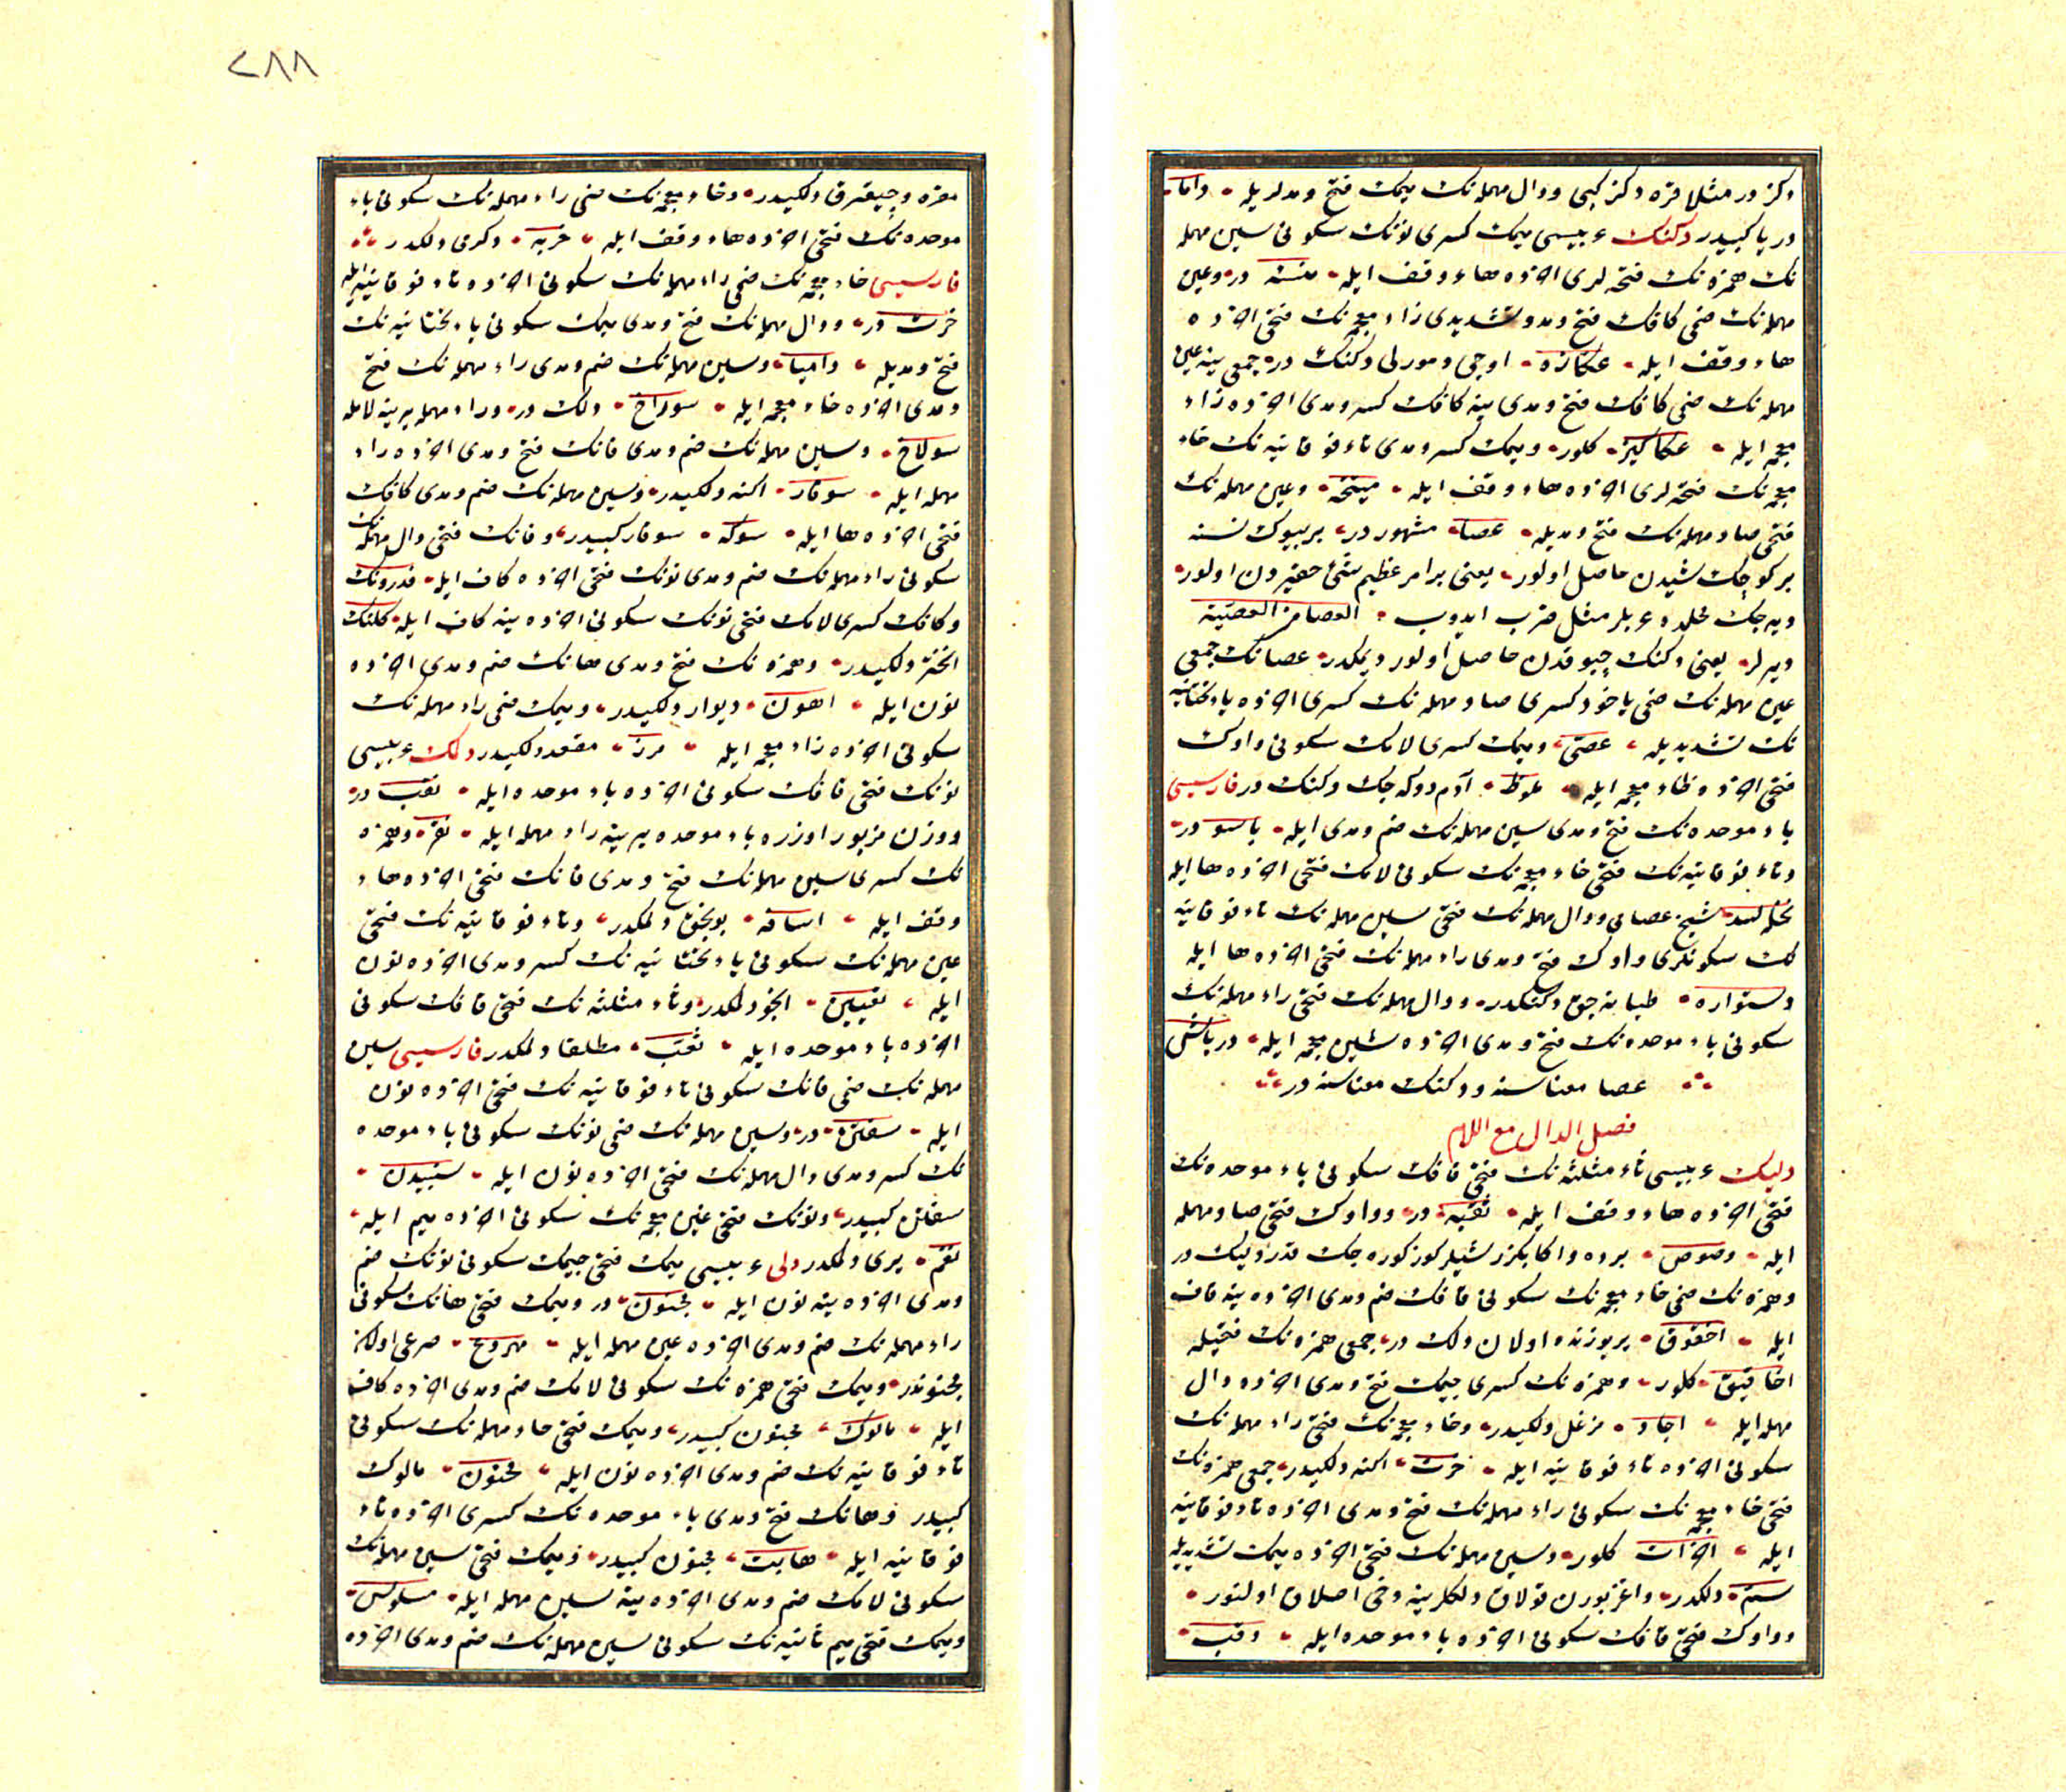 دكز در مثلا قره دكز كبى ودال مهمله نك ميمك فتح ومدلريله داما
دريا كبيدر دكنك عربيسى ميمك كسرى نونك سكونى سين مهمله
نك همزه نك فتحه لرى اخرده هاء وقف ايله منسئه در وعين
مهمله نك ضمى كافك فتح ومد وتشديدى زاء معجمه نك فتحى اخرده
هاء وقف ايله عكازه اوجى دمورلى دكنك در جمعى ينه عين
مهمله نك ضمى كافك فتح ومدى ينه كافك كسر ومدى اخرده زاء
معجمه ايله عكاكيز كلور وميمك كسر ومدى تاء فوقانيه نك خاء
معجمه نك فتحه لرى اخرده هاء وقف ايله ميتخه وعين مهمله نك
فتحى صاد مهمله نك فتح ومديله عصا مشهور در بر بيوك نسنه
بر كوچك شيدن حاصل اولور يعنى بر امر عظيم شئ حقيردن اولور
ديه جك محلده عربلر مثل ضرب ايدوب العصا من العصية
ديرلر يعنى دكنك چبوقدن حاصل اولور ديمكدر عصانك جمعى
عين مهمله نك ضمى ياخود كسرى صاد مهمله نك كسرى اخرده ياء تحتانيه
نك تشديديله عصى وميمك كسرى لامك سكونى واوك
فتحى اخرده ظاء معجمه ايله ملوظ آدم دوكه جك دكنك در فارسيسى
باء موحده نك فتح ومدى سين مهمله نك ضم ومدى ايله باسو در
وتاء فوقانيه نك فتحى خاء معجمه نك سكونى لامك فتحى اخرده ها ايله
تخله شيخ عصاسى ودال مهمله نك فتحى سين مهمله نك تاء فوقانيه
نك سكونلرى واوك فتح ومدى راء مهمله نك فتحى اخرده ها ايله
دستواره طبانجه دكنكدر ودال مهمله نك فتحى راء مهمله نك
سكونى باء موحده نك فتح ومدى اخرده شين معجمه ايله درباش
عصا معناسنه ودكنك معناسنه در
فصل الدال مع اللام
دليك عربيسى ثاء مثلثه نك فتحى قافك سكونى باء موحده نك
فتحى اخرده هاء وقف ايله ثقبه در وواوك فتحى صاد مهمله
ايله وصوص برده واكا بكزر شيلر كوز كوره جك قدر دليك در
وهمزه نك ضمى خاء معجمه نك سكونى قافك ضم ومدى اخرده ينه قاف
ايله اخقوق ير يوزنده اولان دلك در جمعى همزه نك فتحيله
اخاقيق كلور وهمزه نك كسرى جيمك فتح ومدى اخرده دال
مهمله ايله اجاد مزغل دلكيدر وخاء معجمه نك فتحى راء مهمله نك
سكونى اخرده تاء فوقانيه ايله خرت اكنه دلكيدر جمعى همزه نك
فتحى خاء معجمه نك سكونى راء مهمله نك فتح ومدى اخرده تاء فوقانيه
ايله اخرات كلور وسين مهمله نك فتحى اخرده ميمك تشديديله
سم دلكدر واغز بورن قولاق دلكلرينه دخى اطلاق اولنور
وواوك فتحى قافك سكونى اخرده باء موحده ايله وقب
مقره وچيقرق دلكيدر وخاء معجمه نك ضمى راء مهمله نك سكونى باء
موحده نك فتحى اخرده هاء وقف ايله خربه دكرمى دلكدر
فارسيسى خاء معجمه نك ضمى راء مهمله نك سكونى اخرده تاء فوقانيه ايله
خرت در ودال مهمله نك فتح ومدى ميمك سكونى ياء تحتانيه نك
فتح ومديله داميا وسين مهمله نك ضم ومدى راء مهمله نك فتح
ومدى اخرده خاء معجمه ايله سوراخ دلك در وراء مهمله يرينه لامله
سولاخ وسين مهمله نك ضم ومدى فانك فتح ومدى اخرده راء
مهمله ايله سوفار اكنه دلكيدر وسين مهمله نك ضم ومدى كافك
فتحى اخرده ها ايله سوكه سوفار كبيدر وفانك فتحى دال مهمله نك
سكونى راء مهمله نك ضم ومدى نونك فتحى اخرده كاف ايله فدرونك
وكافك كسرى لامك فتحى نونك سكونى اخرده ينه كاف ايله كلنك
دلكيدر وهمزه نك فتح ومدى هانك ضم ومدى اخرده
نون ايله اهون ديوار دلكيدر وميمك ضمى راء مهمله نك
سكونى اخرده زاء معجمه ايله مرز مقعد دلكيدر دلك عربيسى
نونك فتحى قافك سكونى اخرده باء موحده ايله نقب در
ووزن مزبور اوزره باء موحده يرينه راء مهمله ايله نقر وهمزه
نك كسرى سين مهمله نك فتح ومدى فانك فتحى اخرده هاء
وقف ايله اسافه دلكدر وتاء فوقانيه نك فتحى
عين مهمله نك سكونى ياء تحتانيه نك كسر ومدى اخرده نون
ايله تعيين دلكدر وثاء مثلثه نك فتحى قافك سكونى
اخرده باء موحده ايله ثقب مطلقا دلكدر فارسيسى سين
مهمله نك ضمى فانك سكونى تاء فوقانيه نك فتحى اخرده نون
ايله سفتن در وسين مهمله نك ضمى نونك سكونى باء موحده
نك كسر ومدى دال مهمله نك فتحى اخرده نون ايله سنبيدن
سفتن كبيدر ونونك فتحى غين معجمه نك سكونى اخرده ميم ايله
نغم يرى دلكدر دلى عربيسى ميمك فتحى جيمك سكونى نونك ضم
ومدى اخرده ينه نون ايله مجنون در وميمك فتحى هانك سكونى
راء مهمله نك ضم ومدى اخرده عين مهمله ايله مهروع صرعى اولان
مجنوندر وميمك فتحى همزه نك سكونى لامك ضم ومدى اخرده كاف
ايله مالوك مجنون كبيدر وميمك فتحى حاء مهمله نك سكونى
تاء فوقانيه نك ضم ومدى اخرده نون ايله محتون مالوك
كبيدر وهانك فتح ومدى باء موحده نك كسرى اخرده تاء
فوقانيه ايله هابت مجنون كبيدر وميمك فتحى سين مهمله نك
سكونى لامك ضم ومدى اخرده ينه سين مهمله ايله مسلوس
وميمك فتحى ميم ثانيه نك سكونى سين مهمله نك ضم ومدى اخرده